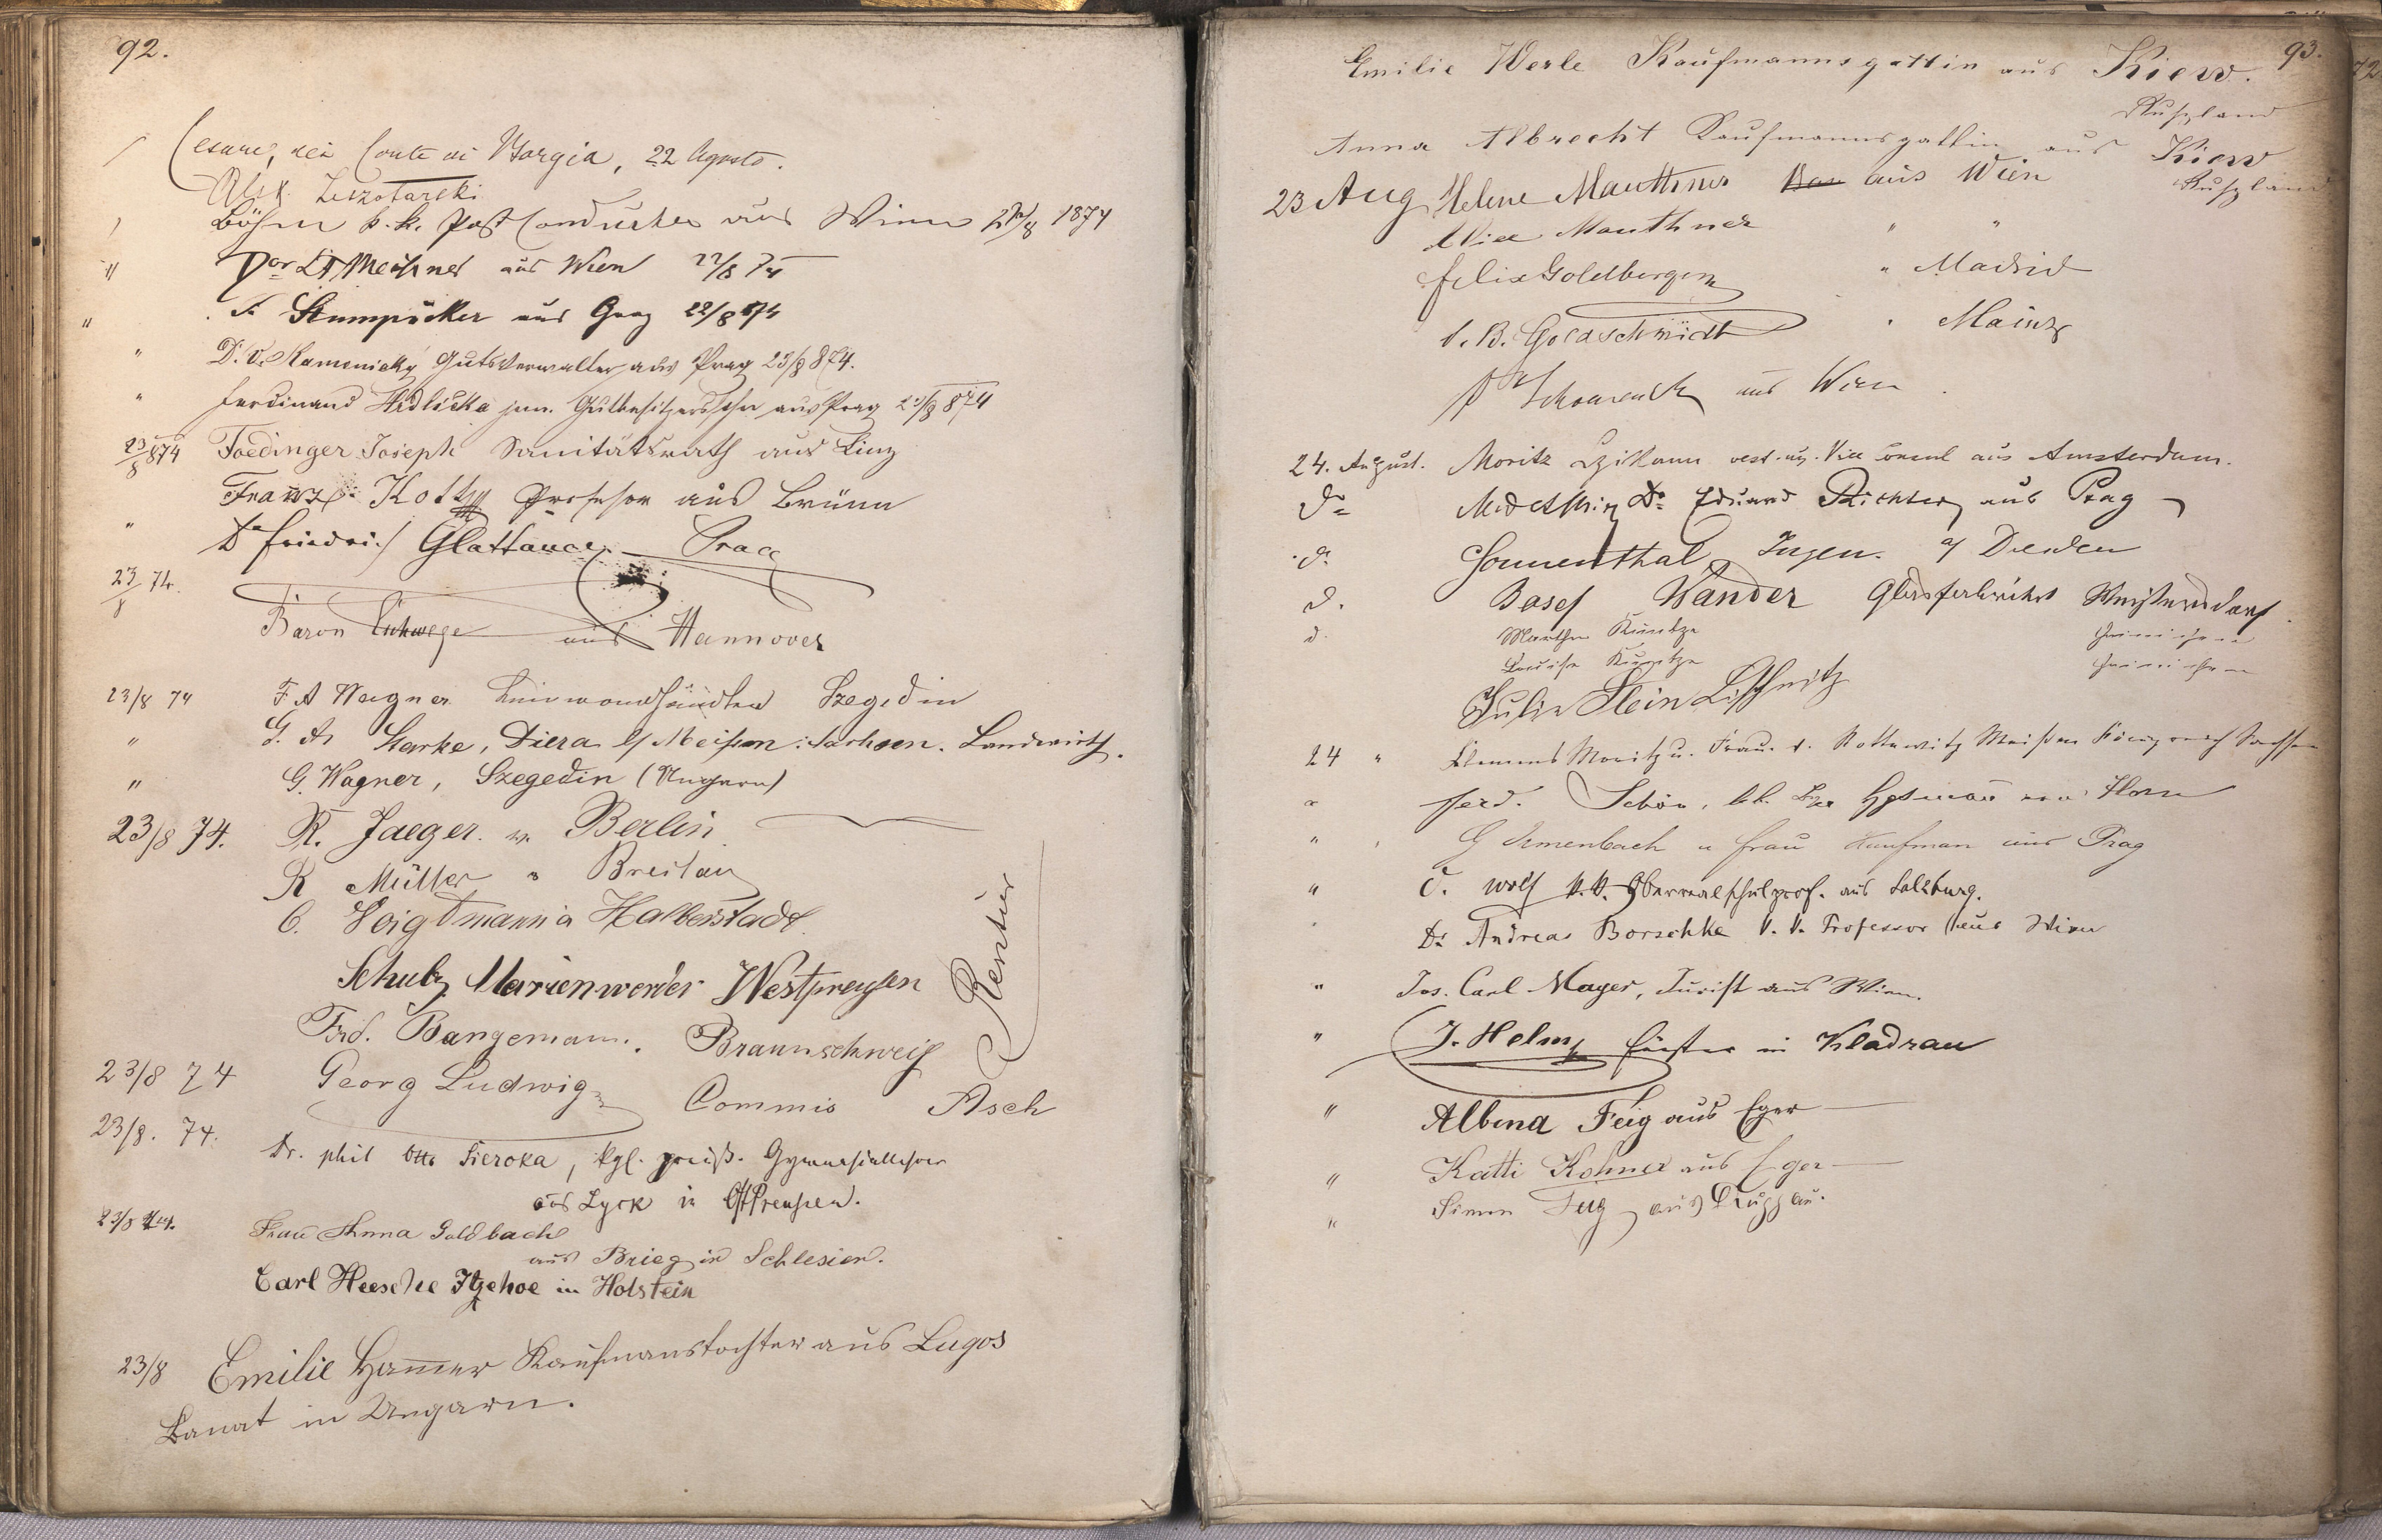 92.
Cesare, dei Conte di Borgia, 22 Agosto.
Alex. Leszotarski
Böhm k. k. Post Conducteur aus Wien 22/8 1874
" aus Wien 22/8 74
" F. aus Graz 22/8 874
" D. V. Kamenický Gutsverwalter aus Prag 23/8 874.
" Ferdinand Hrdlicka jun. Gutbesitzerssohn aus Prag 23/8 874
23/8 874 Foedinger Joseph Sanitätsrath aus Linz
Franz Professor aus Brünn
" Dr Friedrich Glattauer Prag
23/8 74.
Baron Eschwege aus Hannover
23/8 74 F. A Wagner Leinwandhändler Szegedin
" G. A. Starke, Diera b/ Meißen: Sachsen. Landwirth.
" G. Wagner, Szegedin (Ungarn)
23/8 74. R. Jaeger. v. Berlin
R Müller " Breslau
C. Voigtmann a Halberstadt.
Rentier
Schulz Marienwerder Westpreußen
Frd. Bangemann. Braunschweig
23/8 74 Georg Ludwig Commis Asch
23/8. 74. Dr. phil Otto Sieroka, kgl. preuß. Gymnasiallehrer
aus Lyck in OstPreußen.
23/8 74. Frau Anna Goldbach
aus Brieg in Schlesien.
Carl Heesche Itzehoe in Holstein
23/8 Emilie Hammer Kaufmanstochter aus Lugos
Banat in Ungarn.
93.
Emilie Werle Kaufmannsgattin aus Kiew.
Rußland
Anna Albrecht Kaufmannsgattin aus Kiew
Rußland
23 Aug Helene Mauthner aus Wien
Alice Mauthner " "
Felix Goldberger " Madrid
B. Goldschmidt " Mainz
aus Wien
24. August. Moritz öest. ung. Vice Consul aus Amsterdam.
Do Dr. Eduard Richter aus Prag
d. Sonnenthal, Ingen. a/ Dresden
d. Josef Wander Glasfabrikant
d. Martha Kuntze
Louise Kuntze
Julie Stein
24 " Clemens Moritz u. Frau. Meißen Königreich Sachsen
" Ferd. Schön, k. k. Horn
" G u Frau Kaufman aus Prag
" Wolf k. k. Oberrealschulprof. aus Salzburg.
" Dr. Andreas Borschke k. k. Professor aus Wien
" Jos. Carl Mayer, Jurist aus Wien.
" J. Helm Förster in Kladrau
" Albina Feig aus Eger
" Katti Kohner aus Eger
" Simon Feig aus